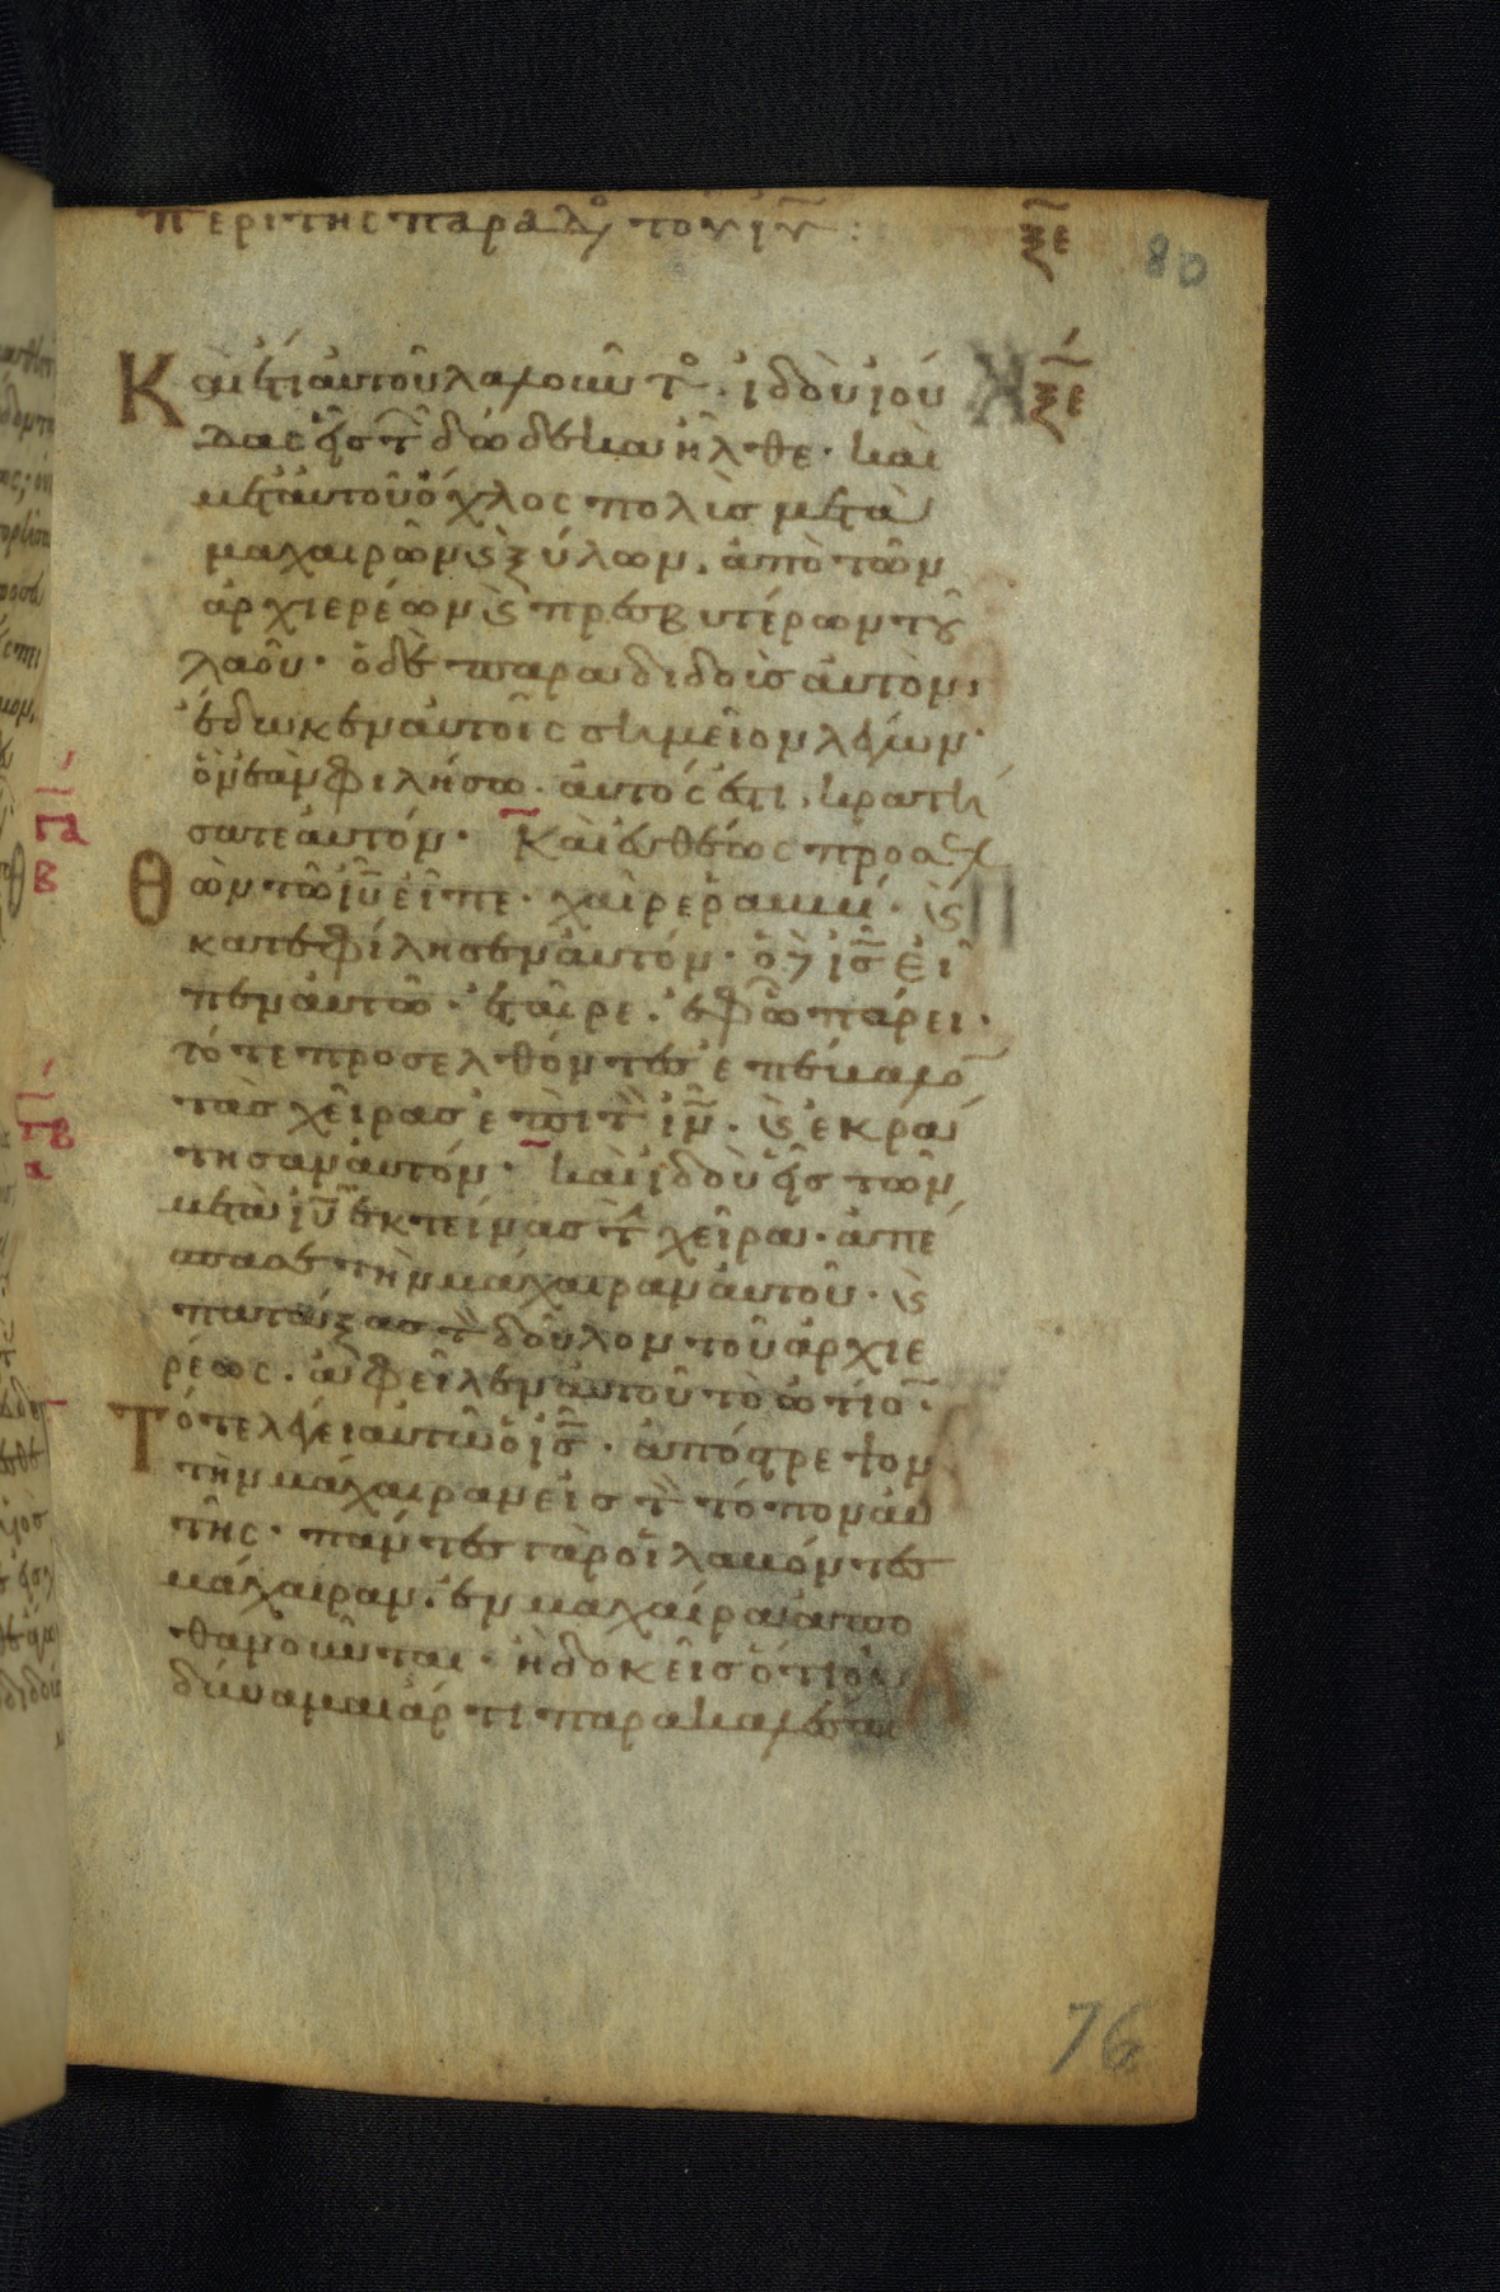 περι της παραδο του ιυ :
ξε
80
Και ἔτι αὐτοῦ λαλοῦντο. ἰδοὺ ἰού
ξε
δας εἷς τ δώδεκα ἦλθε· και
μετ αὐτοῦ ὄχλος πολὺς μετὰ
μαχαιρῶν ϗ ξύλων. ἀπὸ τῶν
ἀρχιερέων ϗ πρεσβυτέρων τοῦ
λαοῦ· ὁ δὲ παραδιδοὺς αὐτὸν,
ἔδωκεν αὐτοῖς σημεῖον λέγων·
ὃν ἐὰν φιλήσω. αὐτός ἐστι, κρατή
σατε αὐτόν· Καὶ εὐθέως προσελ
θὼν τῶ ιυ εἶπε· χαῖρε ῥαββί· ϗ
κατεφίλησεν αὐτόν· ὁ δὲ ις εἶ
πεν αὐτῶ· ἑταῖρε. ἐφ ὧ πάρει·
τότε προσελθόντες ἐπέβαλο
τὰς χεῖρας ἐπὶ τ ιν. ϗ ἐκρά
τησαν αὐτόν· και ἰδοὺ εἷς τῶν
μετὰ ιυ ἐκτείνας τ χεῖρα. ἀπέ
σπασε τὴν μάχαιραν αὐτοῦ· ϗ
πατάξας τ δοῦλον τοῦ ἀρχιε
ρέως. ἀφεῖλεν αὐτοῦ τὸ ὠτίο·
Τότε λέγει αὐτῶ ὁ ις. ἀπόστρεψον
τὴν μάχαιραν εἰς τ τόπον αὐ
τῆς· πάντες γὰρ οἱ λαβόντες
μάχαιραν. ἐν μαχαίρα ἀπο
θανοῦνται· ἢ δοκεῖς ὅτι οὐ
δύναμαι ἄρτι παρακαλέσαι
πα
β
πβ
α
76